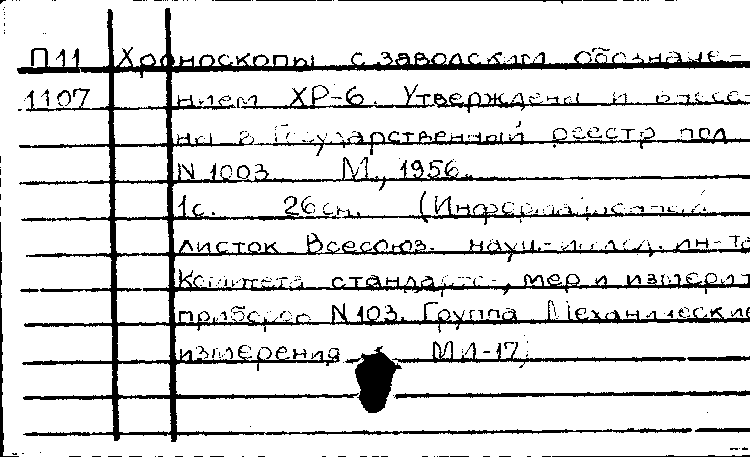 П11 Хроноскопы с заводским обозначе-
1107 нием ХР-6. Утверждены и внесе-
ны в Государственный реестр под
N 1003 М., 1956.
1с. 26см. (Информационный
листок Всесоюз. науч.-исслед. ин-та
Комитета стандартов, мер и измерит.
приборов N103. Группа Механические
измерения МИ-17)